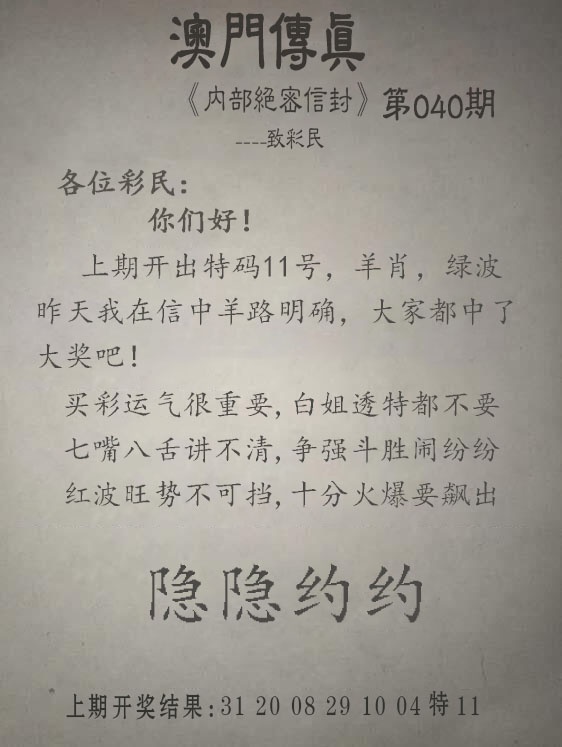 澳門傳真
《内部絕密信封》第040期
----致彩民
各位彩民：
你们好！
上期开出特码11号，羊肖，绿波
昨天我在信中羊路明确，大家都中了
大奖吧！
买彩运气很重要,白姐透特都不要
七嘴八舌讲不清,争强斗胜闹纷纷
红波旺势不可挡,十分火爆要飙出
隐隐约约
上期开奖结果:31 20 08 29 10 04特11